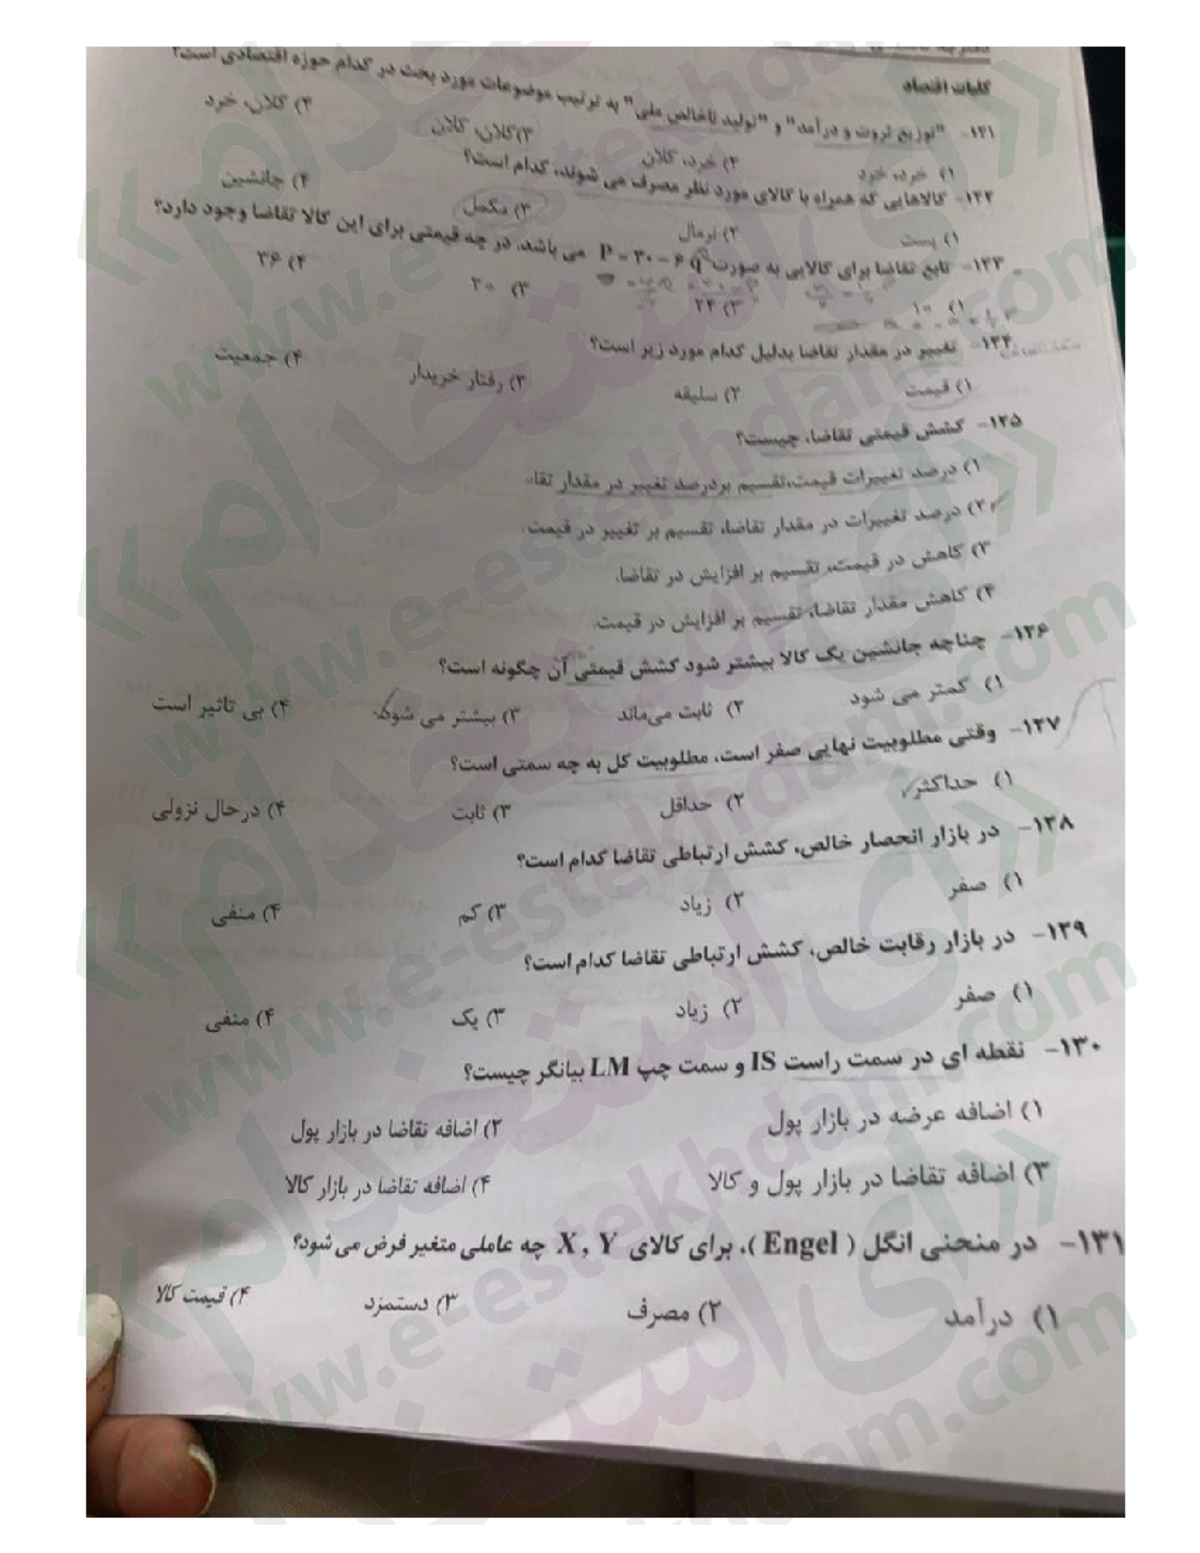 کلیات اقتصاد
۱۲۱- "توزیع ثروت و درآمد" و "تولید ناخالص ملی" به ترتیب موضوعات مورد بحث در کدام حوزه اقتصادی است؟
۱) خرد، خرد ۲) خرد، کلان ۳) کلان، کلان ۴) کلان، خرد
۱۲۲- کالاهایی که همراه با کالای مورد نظر مصرف می شوند، کدام است؟
۱) پست ۲) نرمال ۳) مکمل ۴) جانشین
۱۲۳- تابع تقاضا برای کالایی به صورت P = ۳۰ - ۶q می باشد. در چه قیمتی برای این کالا تقاضا وجود دارد؟
۱) ۱۰ ۲) ۲۴ ۳) ۳۰ ۴) ۳۶
۱۲۴- تغییر در مقدار تقاضا بدلیل کدام مورد زیر است؟
۱) قیمت ۲) سلیقه ۳) رفتار خریدار ۴) جمعیت
۱۲۵- کشش قیمتی تقاضا، چیست؟
۱) درصد تغییرات قیمت، تقسیم بر درصد تغییر در مقدار تقا
۲) درصد تغییرات در مقدار تقاضا، تقسیم بر تغییر در قیمت.
۳) کاهش در قیمت، تقسیم بر افزایش در تقاضا.
۴) کاهش مقدار تقاضا، تقسیم بر افزایش در قیمت.
۱۲۶- چناچه جانشین یک کالا بیشتر شود کشش قیمتی آن چگونه است؟
۱) کمتر می شود ۲) ثابت می‌ماند ۳) بیشتر می شود ۴) بی تاثیر است
۱۲۷- وقتی مطلوبیت نهایی صفر است، مطلوبیت کل به چه سمتی است؟
۱) حداکثر ۲) حداقل ۳) ثابت ۴) درحال نزولی
۱۲۸- در بازار انحصار خالص، کشش ارتباطی تقاضا کدام است؟
۱) صفر ۲) زیاد ۳) کم ۴) منفی
۱۲۹- در بازار رقابت خالص، کشش ارتباطی تقاضا کدام است؟
۱) صفر ۲) زیاد ۳) یک ۴) منفی
۱۳۰- نقطه ای در سمت راست IS و سمت چپ LM بیانگر چیست؟
۱) اضافه عرضه در بازار پول ۲) اضافه تقاضا در بازار پول
۳) اضافه تقاضا در بازار پول و کالا ۴) اضافه تقاضا در بازار کالا
۱۳۱- در منحنی انگل ( Engel )، برای کالای X , Y چه عاملی متغیر فرض می شود؟
۱) درآمد ۲) مصرف ۳) دستمزد ۴) قیمت کالا
«ای استخدام»
www.e-estekhdam.com